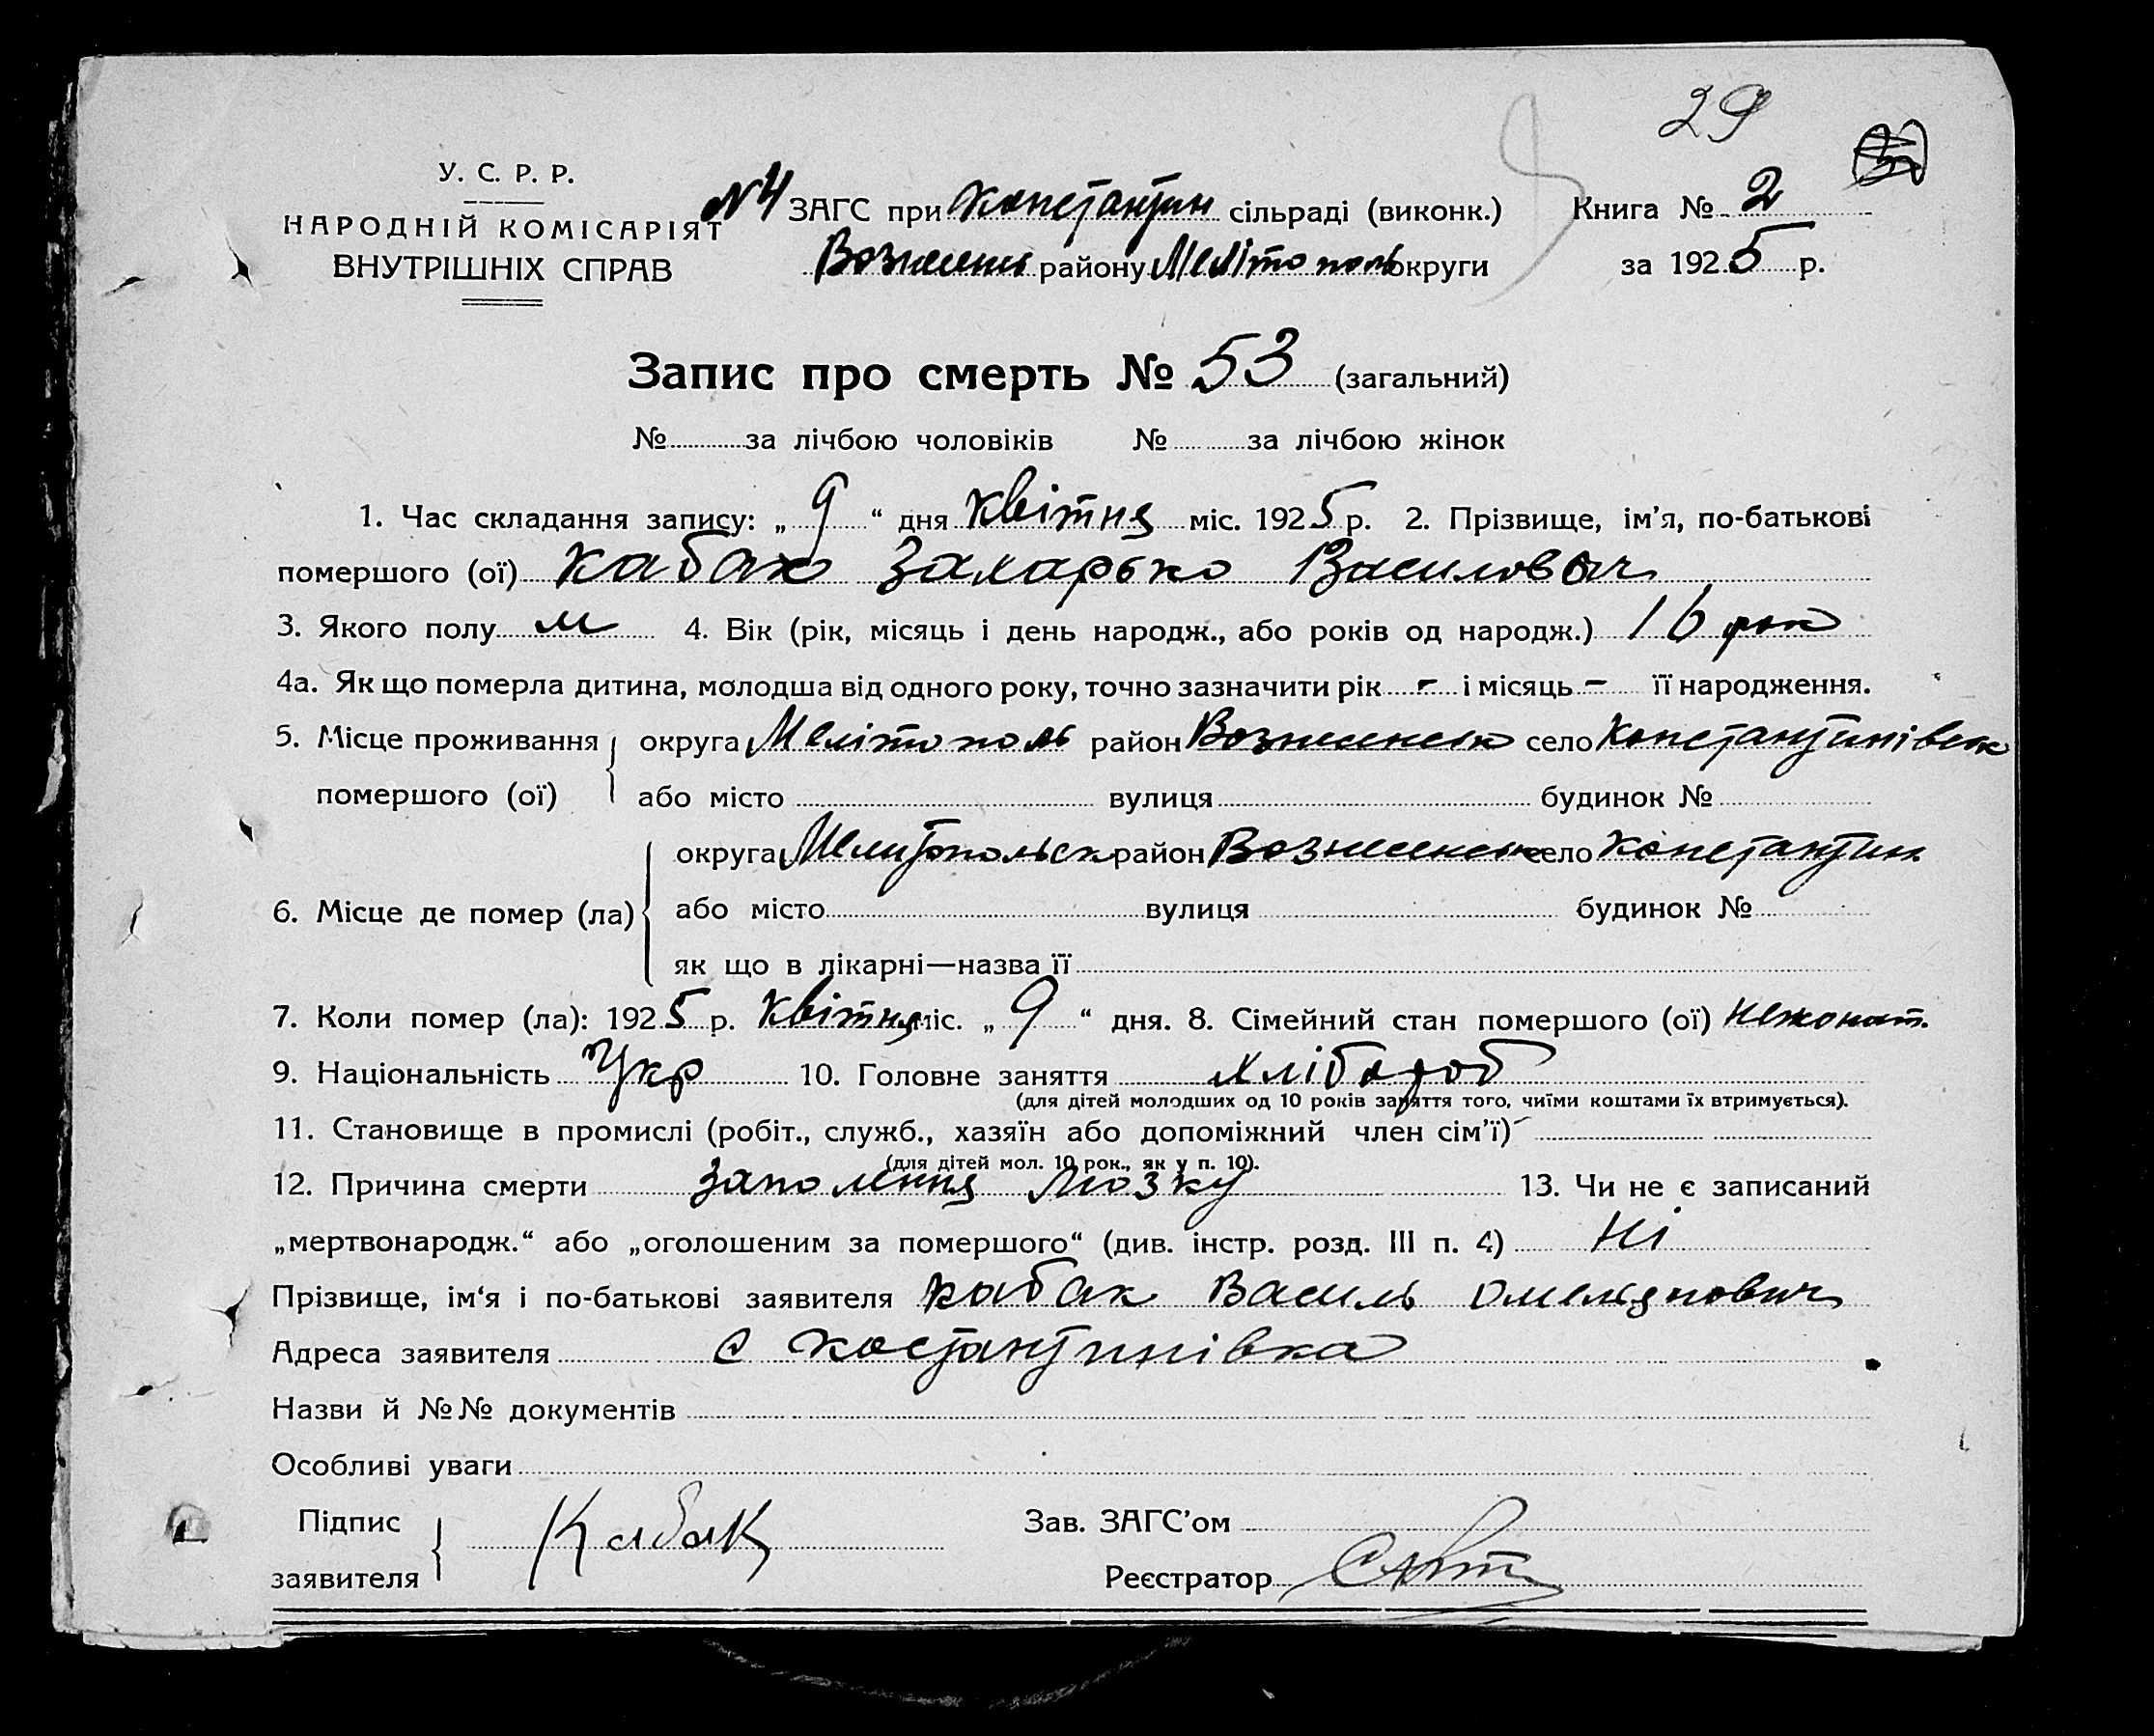 29
У. С. Р. Р.
НАРОДНІЙ КОМІСАРІЯТ
ВНУТРІШНІХ СПРАВ
№4 ЗАГС при Константин сільраді (виконк.) Книга № 2
Вознесенс району Мелітополь округи за 1925 р.
Запис про смерть № 53 (загальний)
№ за лічбою чоловіків № за лічбою жінок
1. Час складання запису: „9“ дня Квітня міс. 1925 р. 2. Прізвище, ім’я, по-батькові
помершого (ої) Кабак Захарько Василович
3. Якого полу м 4. Вік (рік, місяць і день народж., або років од народж.) 16 рок
4а. Як що померла дитина, молодша від одного року, точно зазначити рік - і місяць - її народження.
5. Місце проживання округа Мелітополь район Вознесенськ село Констянтинівськ
помершого (ої) або місто вулиця будинок №
округа Мелитопольск район Вознесенськ село Констянтин
6. Місце де помер (ла) або місто вулиця будинок №
як що в лікарні—назва її
7. Коли помер (ла): 1925 р. Квітня міс. „9“ дня. 8. Сімейний стан помершого (ої) нежонат.
9. Національність Укр 10. Головне заняття хлібороб
(для дітей молодших од 10 років заняття того, чиїми коштами їх втримується).
11. Становище в промислі (робіт., служб., хазяїн або допоміжний член сім’ї) -
(для дітей мол. 10 рок., як у п. 10).
12. Причина смерти заполення мозку 13. Чи не є записаний
„мертвонародж.“ або „оголошеним за помершого“ (див. інстр. розд. III п. 4) Ні
Прізвище, ім‘я і по-батькові заявителя Кабак Василь Омелянович
Адреса заявителя с Костянтинівка
Назви й №№ документів
Особливі уваги
Підпис Кабак Зав. ЗАГС’ом
заявителя Реєстратор